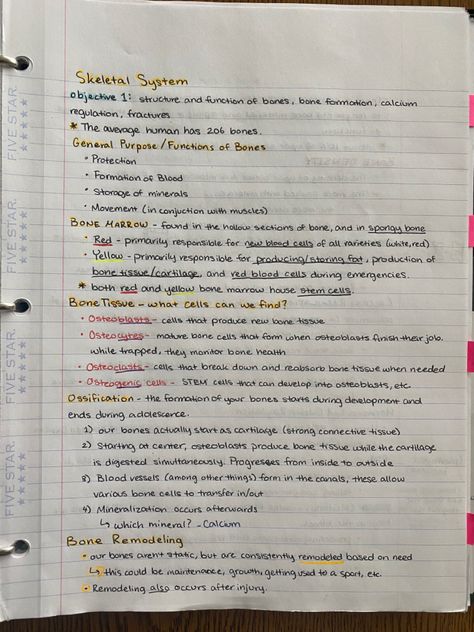 Skeletal System
objective 1: structure and function of bones, bone formation, calcium
regulation, fractures
* The average human has 206 bones.
General Purpose/Functions of Bones
• Protection
• Formation of Blood
• Storage of minerals
• Movement (in conjuction with muscles)
BONE MARROW - found in the hollow sections of bone, and in spongy bone
• Red - primarily responsible for new blood cells of all rarieties (white, red)
• Yellow - primarily responsible for producing/storing fat, production of
bone tissue/cartilage, and red blood cells during emergencies.
* both red and yellow bone marrow house stem cells.
Bone Tissue - what cells can we find?
• Osteoblasts - cells that produce new bone tissue
• Osteocytes - mature bone cells that form when osteoblasts finish their job.
while trapped, they monitor bone health
• Osteoclasts - cells that break down and reabsorb bone tissue when needed
• Osteogenic cells - STEM cells that can develop into osteoblasts, etc.
Ossification - the formation of your bones starts during development and
ends during adolescence.
1) our bones actually start as cartilage (strong connective tissue)
2) Starting at center, osteoblasts produce bone tissue while the cartilage
is digested simultaneously. Progresses from inside to outside
3) Blood vessels (among other things) form in the canals, these allow
various bone cells to transfer in/out
4) Mineralization occurs afterwards
↳ which mineral? - Calcium
Bone Remodeling
• our bones arent static, but are consistently remodeled based on need
↳ this could be maintenance, growth, getting used to a sport, etc.
• Remodeling also occurs after injury.
FIVE STAR
FIVE STAR
FIVE STAR
FIVE STAR